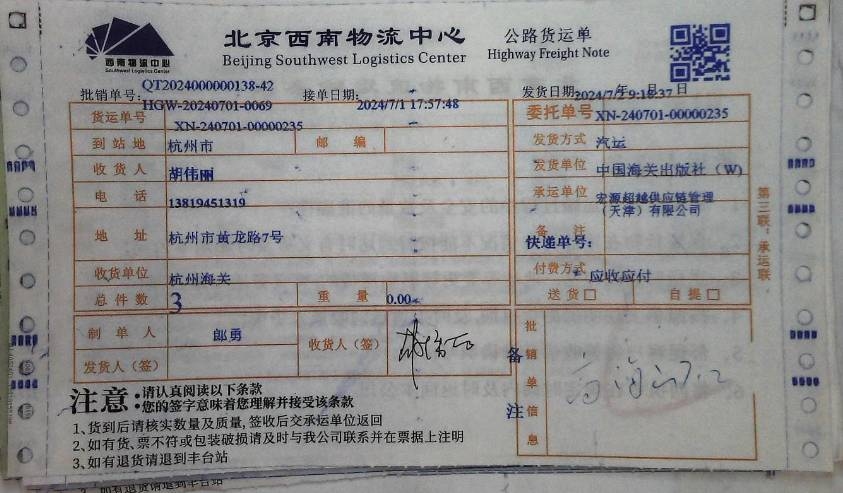 西南物流中心
Southwest Logistics Center
北京西南物流中心
Beijing Southwest Logistics Center
公路货运单
Highway Freight Note
批销单号: QT2024000000138-42
HGW-20240701-0069
接单日期: 2024/7/1 17:57:48
发货日期: 2024/7/2 9:18:37 年 月 日
货运单号 XN-240701-00000235
委托单号 XN-240701-00000235
到站地 杭州市 邮编
发货方式 汽运
收货人 胡伟丽
发货单位 中国海关出版社(W)
电话 13819451319
承运单位 宏源超越供应链管理
(天津)有限公司
地址 杭州市黄龙路7号
备注
快递单号:
收货单位 杭州海关
付费方式 应收应付
总件数 3 重量 0.00
送货□ 自提□
制单人 郎勇
收货人(签)
发货人(签)
备注
批销单信息
第三联:承运联
注意: 请认真阅读以下条款
您的签字意味着您理解并接受该条款
1、货到后请核实数量及质量,签收后交承运单位返回
2、如有货、票不符或包装破损请及时与我公司联系并在票据上注明
3、如有退货请退到丰台站
3、如有退货请退到丰台站